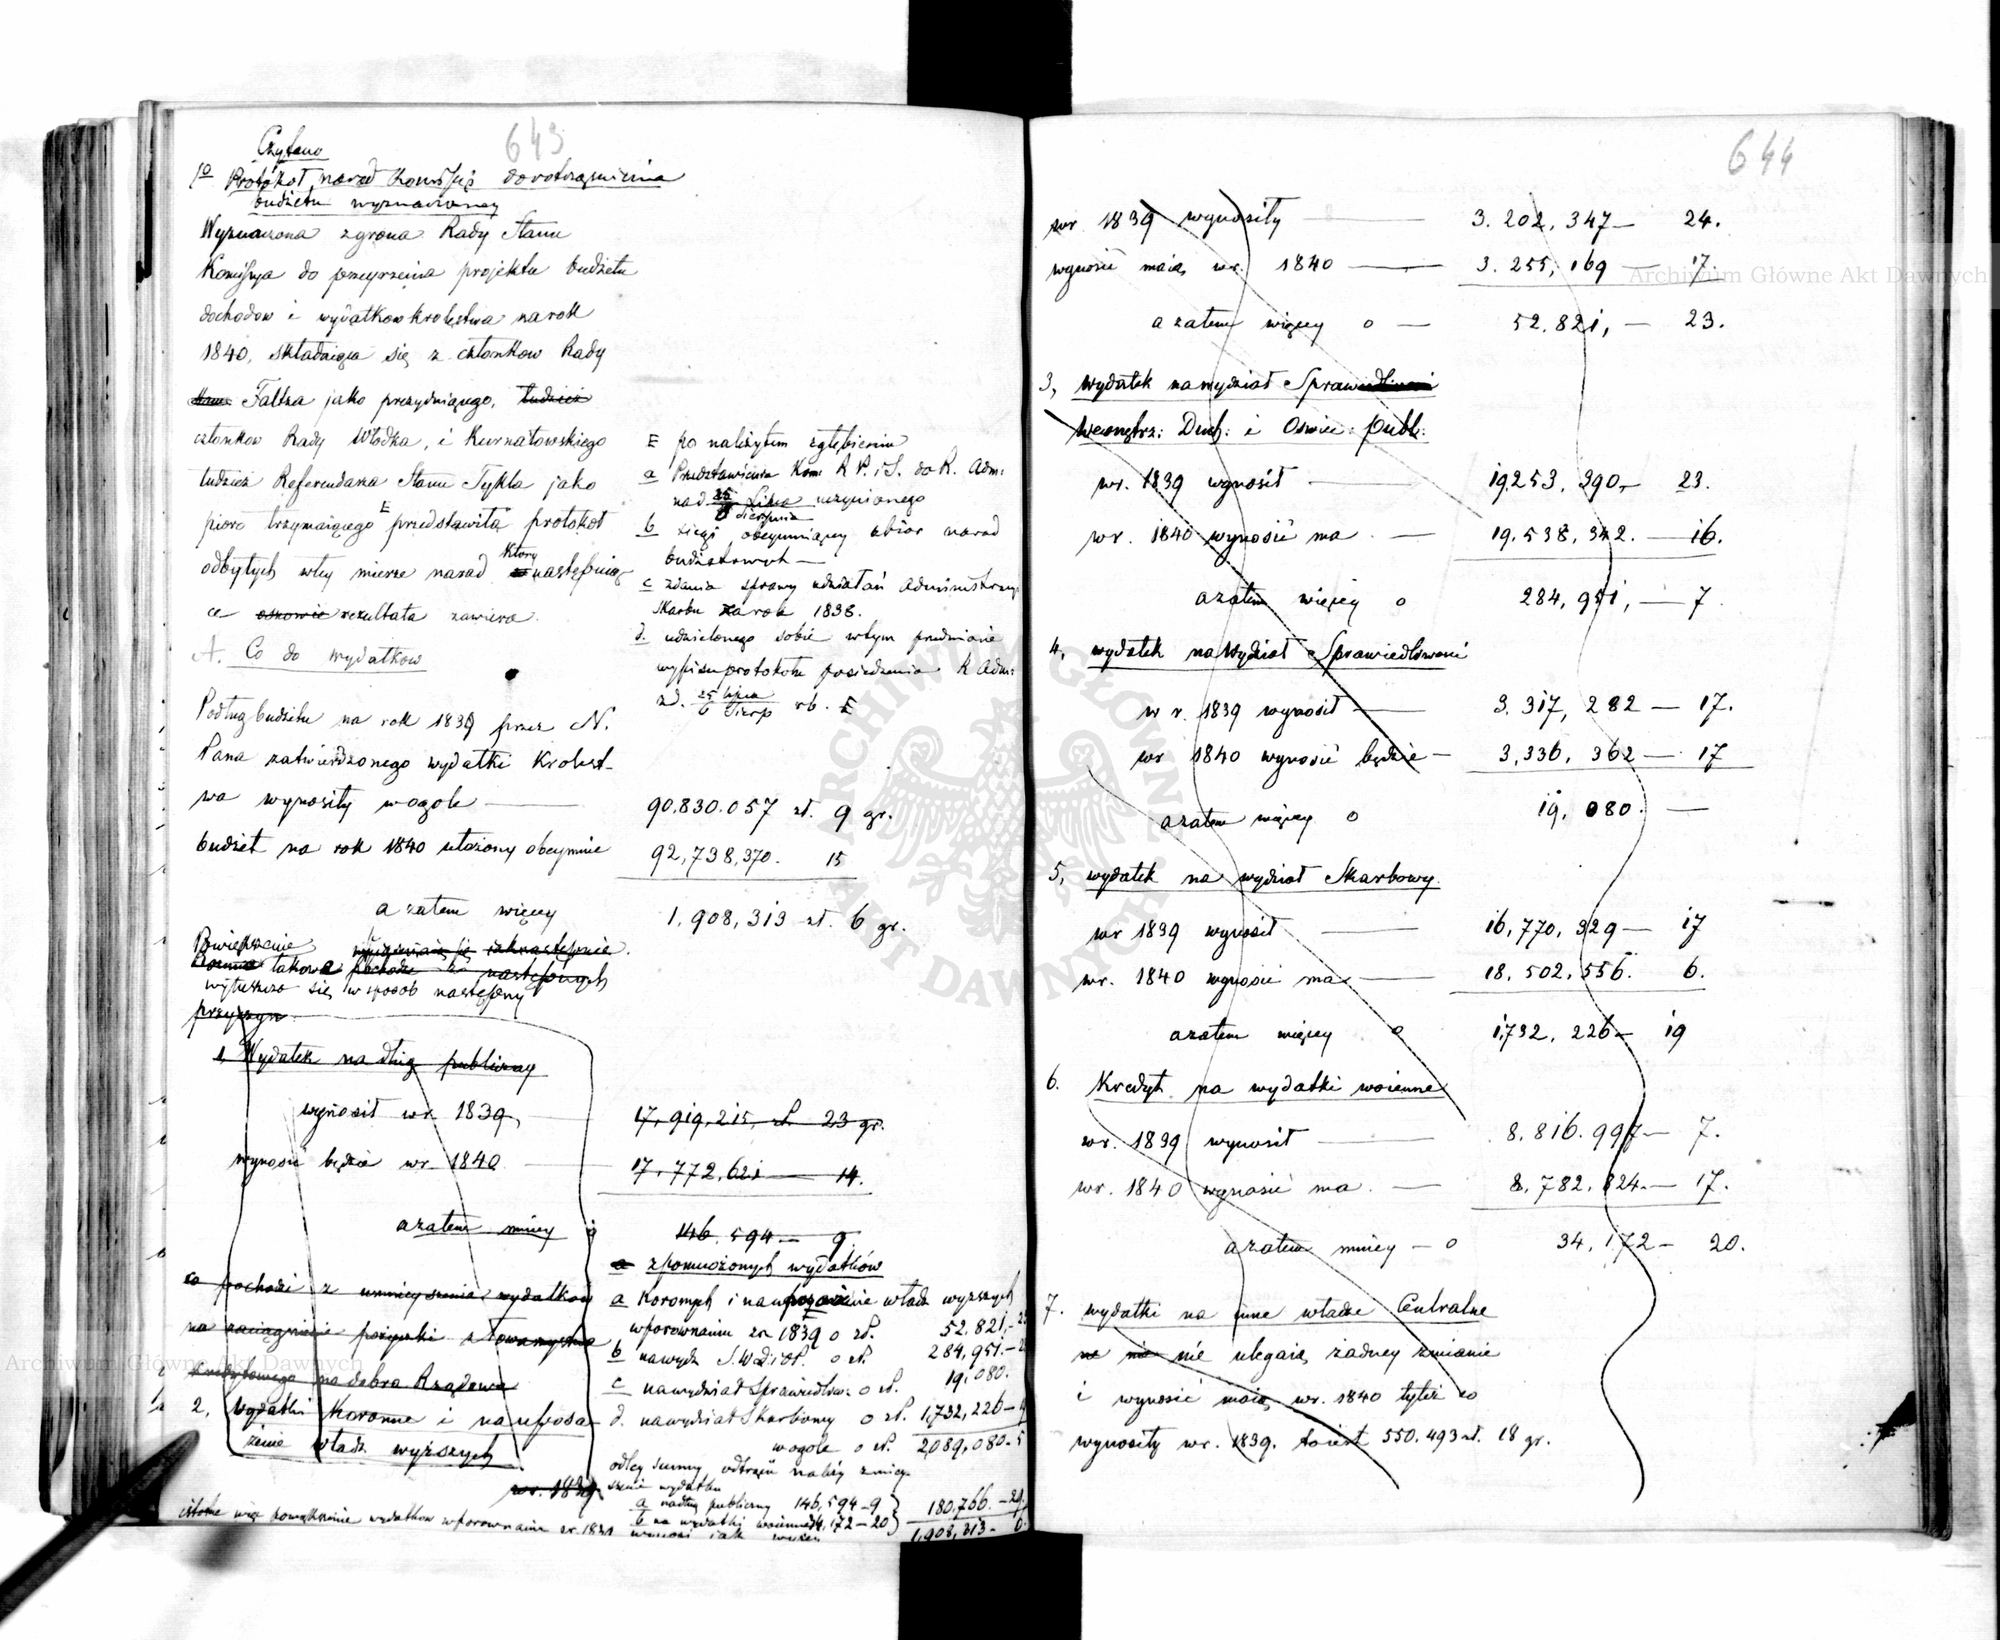 643
Czytano
1o Protokół narad Komissyi do roztrząśnienia
budżetu wyznaczoney
Wyznaczona z grona Rady Stanu
Komissya do przeyrzenia projektu budżetu
dochodow i wydatkow krolestwa na rok
1840, składaiąca się z członkow Rady
Stanu Faltza jako prezyduiącego, tudzież
członkow Rady Włodka, i Kurnatowskiego
tudzież Referendarza Stanu Tykla jako
pioro trzymaiącego E przedstawiła protokoł
odbytych w tey mierze narad który następuią-
ce osnowie rezultata zawiera.
E po należytem zgłębieniu
a Przedstawienia Kom: R. P. i S. do R. Adm:
na d. 25 Lipca / 6 Sierpnia uczynionego
b xięgi obeymuiącey zbior narad
budżetowych —
c zdania sprawy z działań Administracyi
Skarbu za rok 1838.
d. udzielonego sobie w tym przedmiocie
wypisu protokołu posiedzenia R Adm:
z d. 25 lipca / 6 Sierp rb. E
A. Co do wydatkow
Podług budżetu na rok 1839 przez N.
Pana zatwierdzonego wydatki Krolest-
wa wynosiły wogole — 90,830.057 zł. 9 gr.
budżet na rok 1840 ułożony obeymuie 92,738,370. 15
a zatem więcey 1,908,313 zł. 6 gr.
Powiększenie
takowe pochodzi z następnych
wytłuszcza się w sposob następny
przyczyn
1, Wydatek na dług publiczny
wynosił w r. 1839, — 17,919,215, zł. 23 gr.
wynosić będzie w r. 1840 — 17,772,621 — 14.
a zatem mniey o 146.594 — 9.
co pochodzi z zmnieyszenia wydatkow
na zaciągnienie pożyczki z Towarzystwa
kredytowego na dobra Rządowe
2, Wydatki Koronne i na uposa-
żenie władz wyższych
w r. 1839
z pomnożonych wydatków
a Koronnych i na uposażenie władz wyższych
w porownaniu z r. 1839 o zł. 52,821,-23
b na wydz S. W. D. i OP. o zł. 284,951.-
c na wydział Sprawiedliw: o zł. 19,080.
d. na wydział Skarbowy o zł. 1,732,226-
wogole o zł. 2,089,080.
od tey summy odtrącić należy zmniey-
szenie wydatku
a na dług publiczny 146,594-9
b na wydatki woienne 34,172-20 } 180,766.-29
istotne więc powiększenie wydatkow w porownaniu z r. 1839 wynosi jak wyżey 1,908,313-
644
w r. 1839 wynosiły — 3.202,347 — 24.
wynosić maią w r. 1840 — 3.255,169 — 17
a zatem więcey o — 52.821, — 23.
3, wydatek na wydział Sprawiedliwości
Wewnętrz: Duch: i Oświec: publ:
w r. 1839 wynosił — 19,253,390, — 23.
w r. 1840 wynosić ma — 19.538,342. — 16.
a zatem więcey o 284,951, — 7
4, wydatek na Wydział Sprawiedliwości
w r. 1839 wynosił — 3.317,282 — 17.
w r 1840 wynosić będzie — 3,336,362 — 17
a zatem więcey o 19,080. —
5, wydatek na wydział Skarbowy.
w r 1839 wynosił — 16,770,329 — 17
w r. 1840 wynosić ma — 18,502,556. 6.
a zatem więcey o 1,732,226 — 19
6. Kredyt na wydatki woienne
w r. 1839 wynosił — 8.816.997 — 7.
w r. 1840 wynosić ma. — 8,782,824 — 17.
a zatem mniey — o 34,172 — 20.
7. wydatki na inne władze Centralne
nie ulegaią żadney zmianie
i wynosić maią w r. 1840 tyleż co
wynosiły w r. 1839. to iest 550.493 zł. 18 gr.
Archiwum Główne Akt Dawnych
Archiwum Główne Akt Dawnych
ARCHIWUM GŁÓWNE AKT DAWNYCH